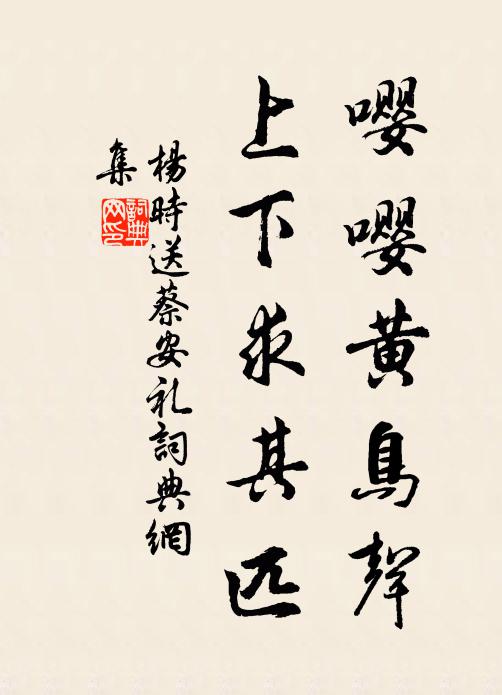 嘤嘤黄鳥聲
上下求其匹
楊時送蔡安礼詞典網
集
詞典
网印